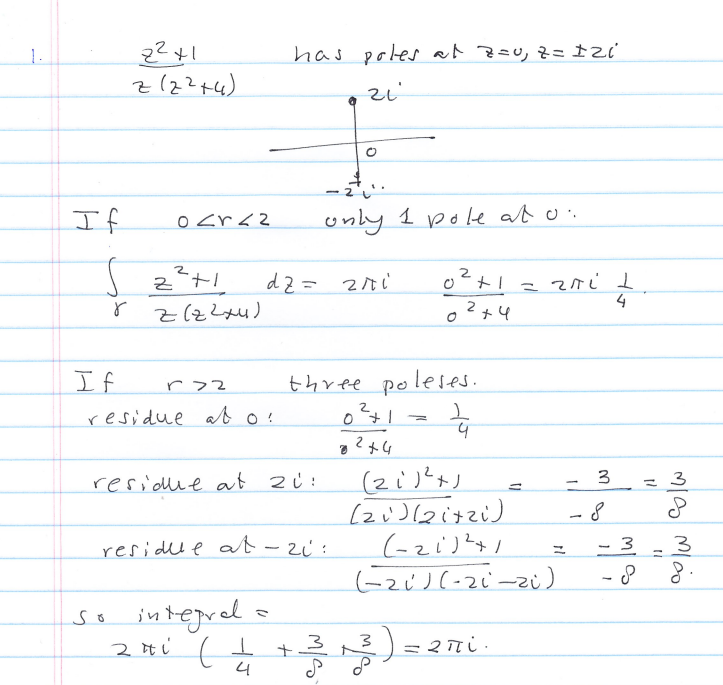 1. z²+1 / z(z²+4) has poles at z=0, z=±2i
2i
0
-2i
If 0<r<2 only 1 pole at 0:
∫_γ (z²+1)/(z(z²+4)) dz = 2πi (0²+1)/(0²+4) = 2πi 1/4.
If r>2 three poleses.
residue at 0: (0²+1)/(0²+4) = 1/4
residue at 2i: ((2i)²+1)/((2i)(2i+2i)) = -3/-8 = 3/8
residue at -2i: ((-2i)²+1)/((-2i)(-2i-2i)) = -3/-8 = 3/8.
so integral =
2πi (1/4 + 3/8 + 3/8) = 2πi.